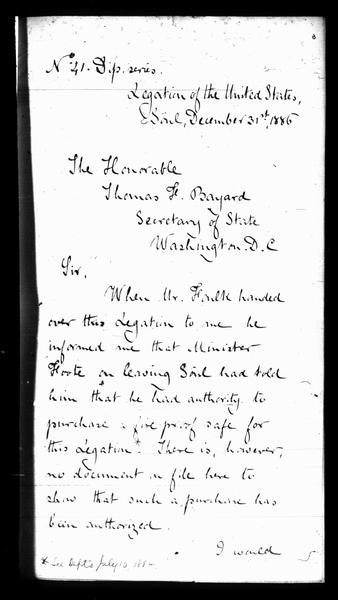 No 41. Dip. series.
Legation of the United States,
Söul, December 31st, 1886
The Honorable
Thomas F. Bayard
Secretary of State
Washington. D.C
Sir,
When Mr. Foulk handed
over this Legation to me he
informed me that Minister
Foote on leaving Söul had told
him that he had authority to
purchase a fire proof safe for
this Legation*. There is, however,
no document on file here to
show that such a purchase has
been authorized.
I would
* See Dept's July 10, 1884.